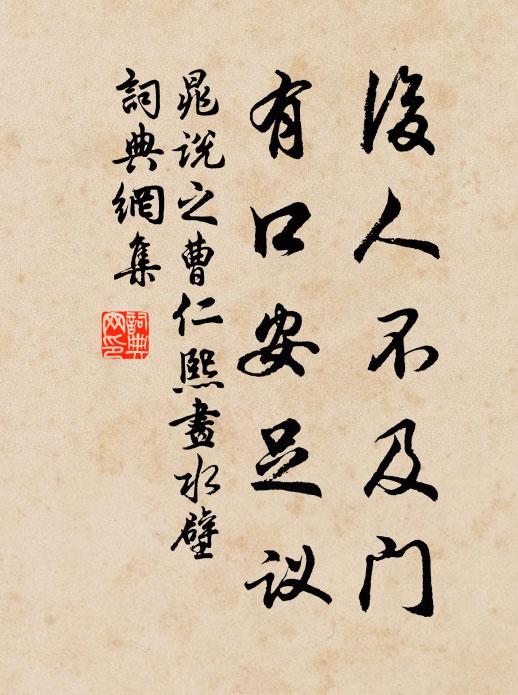 後人不及門
有口安足议
晁说之曹仁熙畫水壁
詞典網集
詞典
网印